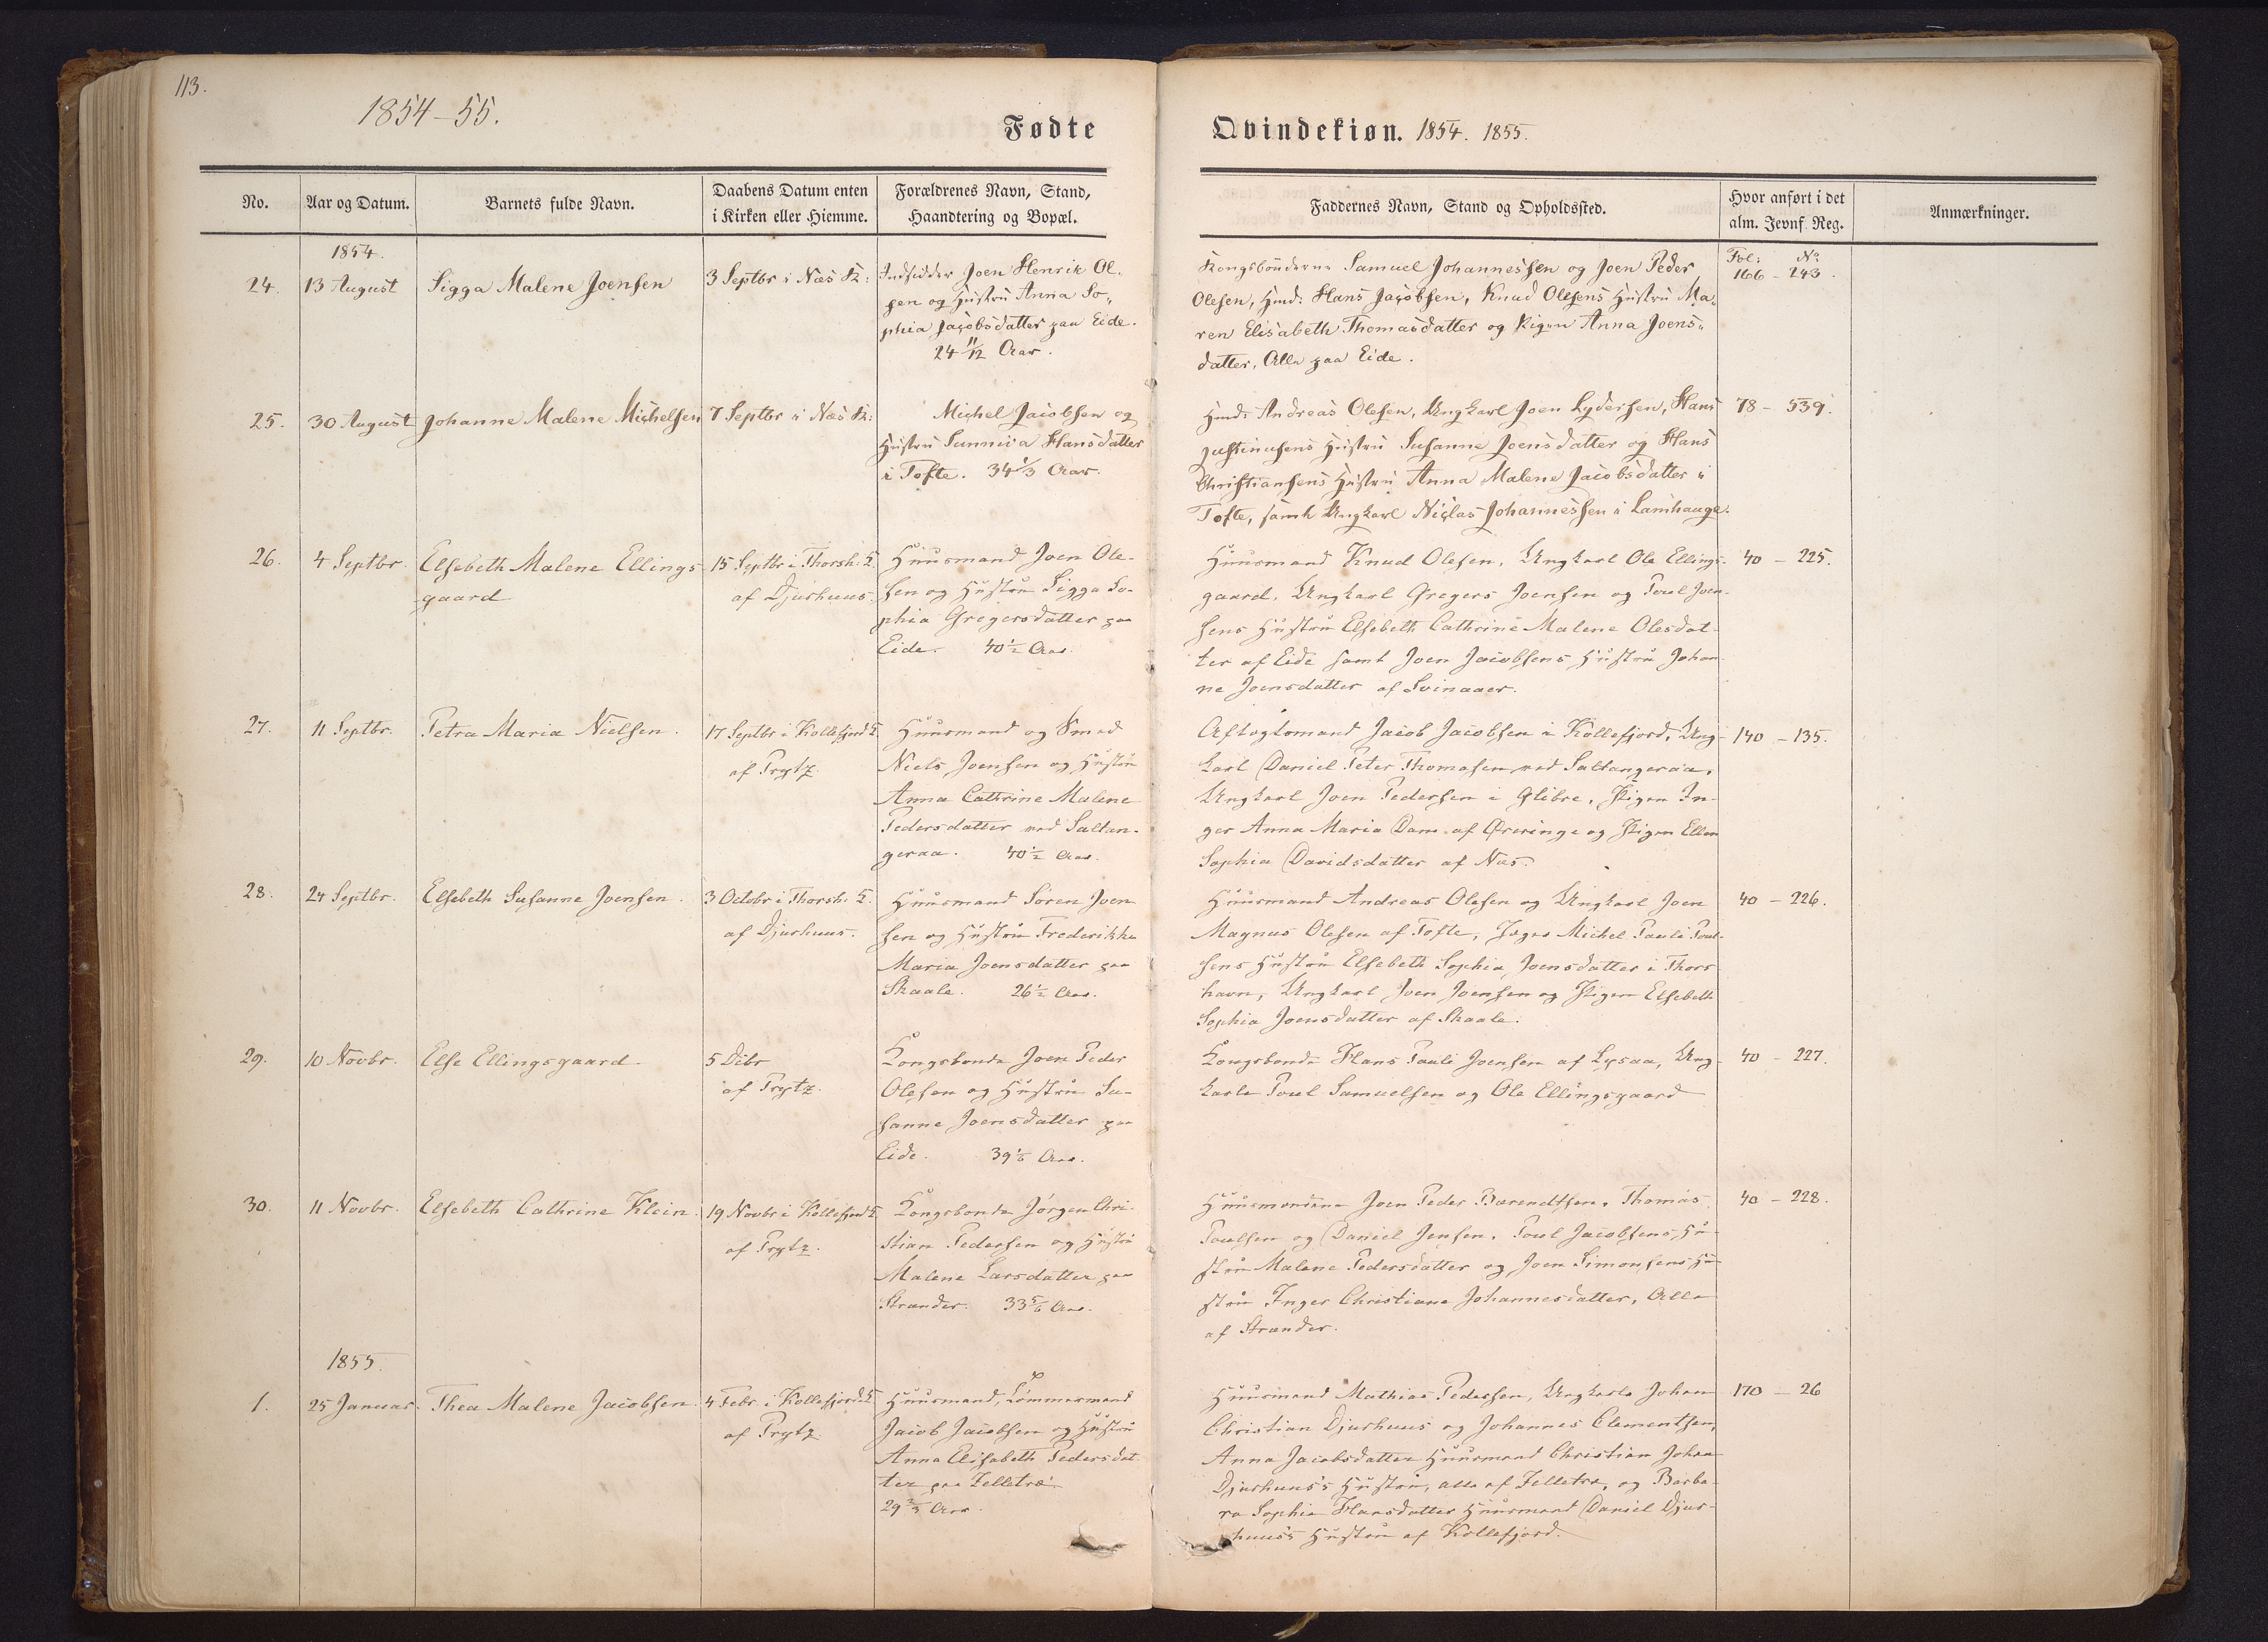 113.
1854-55.
Fødte
Qvindekiøn. 1854. 1855.
No.
Aar og Datum.
Barnets fulde Navn.
Daabens Datum enten
i Kirken eller Hiemme.
Forældrenes Navn, Stand,
Haandtering og Bopæl.
Faddernes Navn, Stand og Opholdssted.
Hvor anført i det
alm. Jevnf. Reg.
Anmærkninger.
1854.
24.
13 August
Sigga Malene Joensen
3 Septbr i Næs K:
Indsidder Joen Henrik Ol-
sen og Hustru Anna So-
phia Jacobsdatter paa Eide.
24 11/12 Aar.
Kongsbønderne Samuel Johannessen og Joen Peder
Olesen, Hmd: Hans Jacobsen, Knud Olesens Hustru Ma-
ren Elisabeth Thomasdatter og Pigen Anna Joens-
datter, Alle paa Eide.
Fol: No
166 - 243.
25.
30 August
Johanne Malene Michelsen
7 Septbr i Næs K:
Michel Jacobsen og
Hustru Sunniva Hansdatter
i Tofte. 34 1/3 Aar.
Hmd: Andreas Olesen, Ungkarl Joen Lydersen, Hans
Justinusens Hustru Susanne Joensdatter og Hans
Christiansens Hustru Anna Malene Jacobsdatter i
Tofte, samt Ungkarl Niclas Johannessen i Lamhauge.
78 - 539.
26.
4 Septbr.
Elsebeth Malene Ellings-
gaard
15 Septbr i Thorsh: K.
af Djurhuus.
Huusmand Joen Ole-
sen og Hustru Sigga So-
phia Gregersdatter paa
Eide. 40 1/2 Aar.
Huusmand Knud Olesen, Ungkarl Ole Ellings-
gaard, Ungkarl Gregers Joensen og Poul Joen-
sens Hustru Elsebeth Cathrine Malene Olesdat-
ter af Eide samt Joen Jacobsens Hustru Johan-
ne Joensdatter af Svinaaer.
40 - 225.
27.
11 Septbr.
Petra Maria Nielsen.
17 Septbr i Kollefjord K.
af Prytz.
Huusmand og Smed
Niels Joensen og Hustru
Anna Cathrine Malene
Pedersdatter ved Saltan-
geraa. 40 1/2 Aar.
Aftægtsmand Jacob Jacobsen i Kollefjord, Ung-
karl Daniel Peter Thomasen ved Saltangeraa,
Ungkarl Joen Pedersen i Glibre, Pigen In-
ger Anna Maria Dam af Øreringe og Pigen Ellen
Sophia Davidsdatter af Næs.
140 - 135.
28.
24 Septbr.
Elsebeth Susanne Joensen.
3 Octobr i Thorsh: K.
af Djurhuus.
Huusmand Sören Joen-
sen og Hustru Frederikke
Maria Joensdatter paa
Skaale. 26 1/2 Aar.
Huusmand Andreas Olesen og Ungkarl Joen
Magnus Olesen af Tofte, Jæger Michel Pauli Poul-
sens Hustru Elsebeth Sophia Joensdatter i Thors-
havn, Ungkarl Joen Joensen og Pigen Elsebeth
Sophia Joensdatter af Skaale.
40 - 226.
29.
10 Novbr.
Else Ellingsgaard
5 Debr
af Prytz.
Kongsbonde Joen Peder
Olesen og Hustru Su-
sanne Joensdatter paa
Eide. 39 1/6 Aar.
Kongsbonde Hans Pauli Joensen af Lysaa, Ung-
karle Poul Samuelsen og Ole Ellingsgaard
40 - 227.
30.
11 Novbr.
Elsebeth Cathrine Klein.
19 Novbr i Kollefjord K.
af Prytz.
Kongsbonde Jørgen Chri-
stian Pedersen og Hustru
Malene Larsdatter paa
Strænder. 33 5/6 Aar.
Huusmændene Joen Peder Bærendtsen, Thomas
Poulsen og Daniel Jensen, Poul Jacobsens Hu-
stru Malene Pedersdatter og Joen Simonsens Hu-
stru Inger Christiane Johannesdatter, Alle
af Strænder.
40 - 228.
1855.
1.
25 Januar.
Thea Malene Jacobsen.
4 Febr. i Kollefjord K.
af Prytz.
Huusmand, Tømmermand
Jacob Jacobsen og Hustru
Anna Elisabeth Pedersdat-
ter paa Selletræ.
29 2/3 Aar.
Huusmand Mathias Pedersen, Ungkarle Johan
Christian Djurhuus og Johannes Clementsen,
Anna Jacobsdatter Huusmand Christian Johan
Djurhuus's Hustru, alle af Selletræ, og Barba-
ra Sophie Hansdatter Huusmand Daniel Djur-
huus's Hustru af Kollefjord.
170 - 26